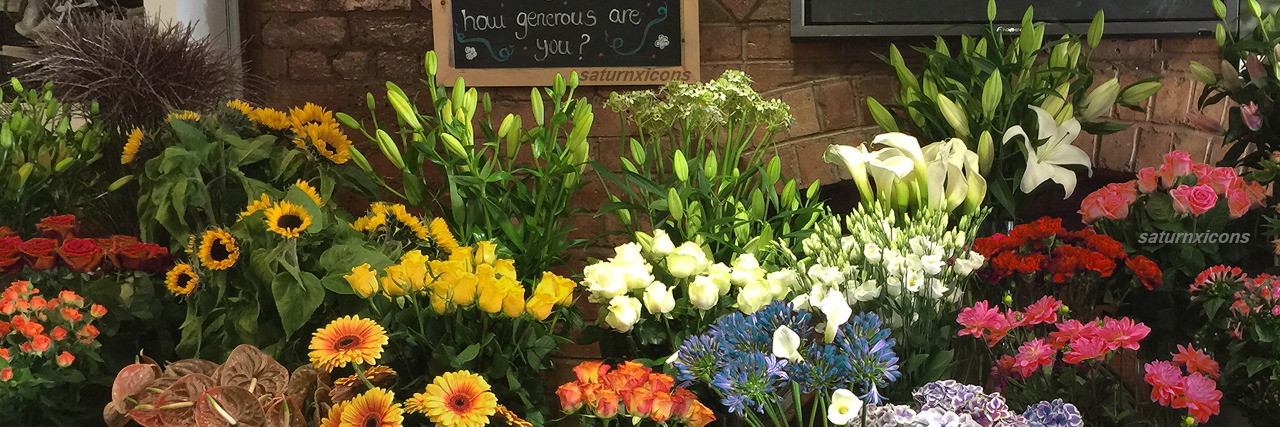 how generous are
you?
saturnxicons
saturnxicons